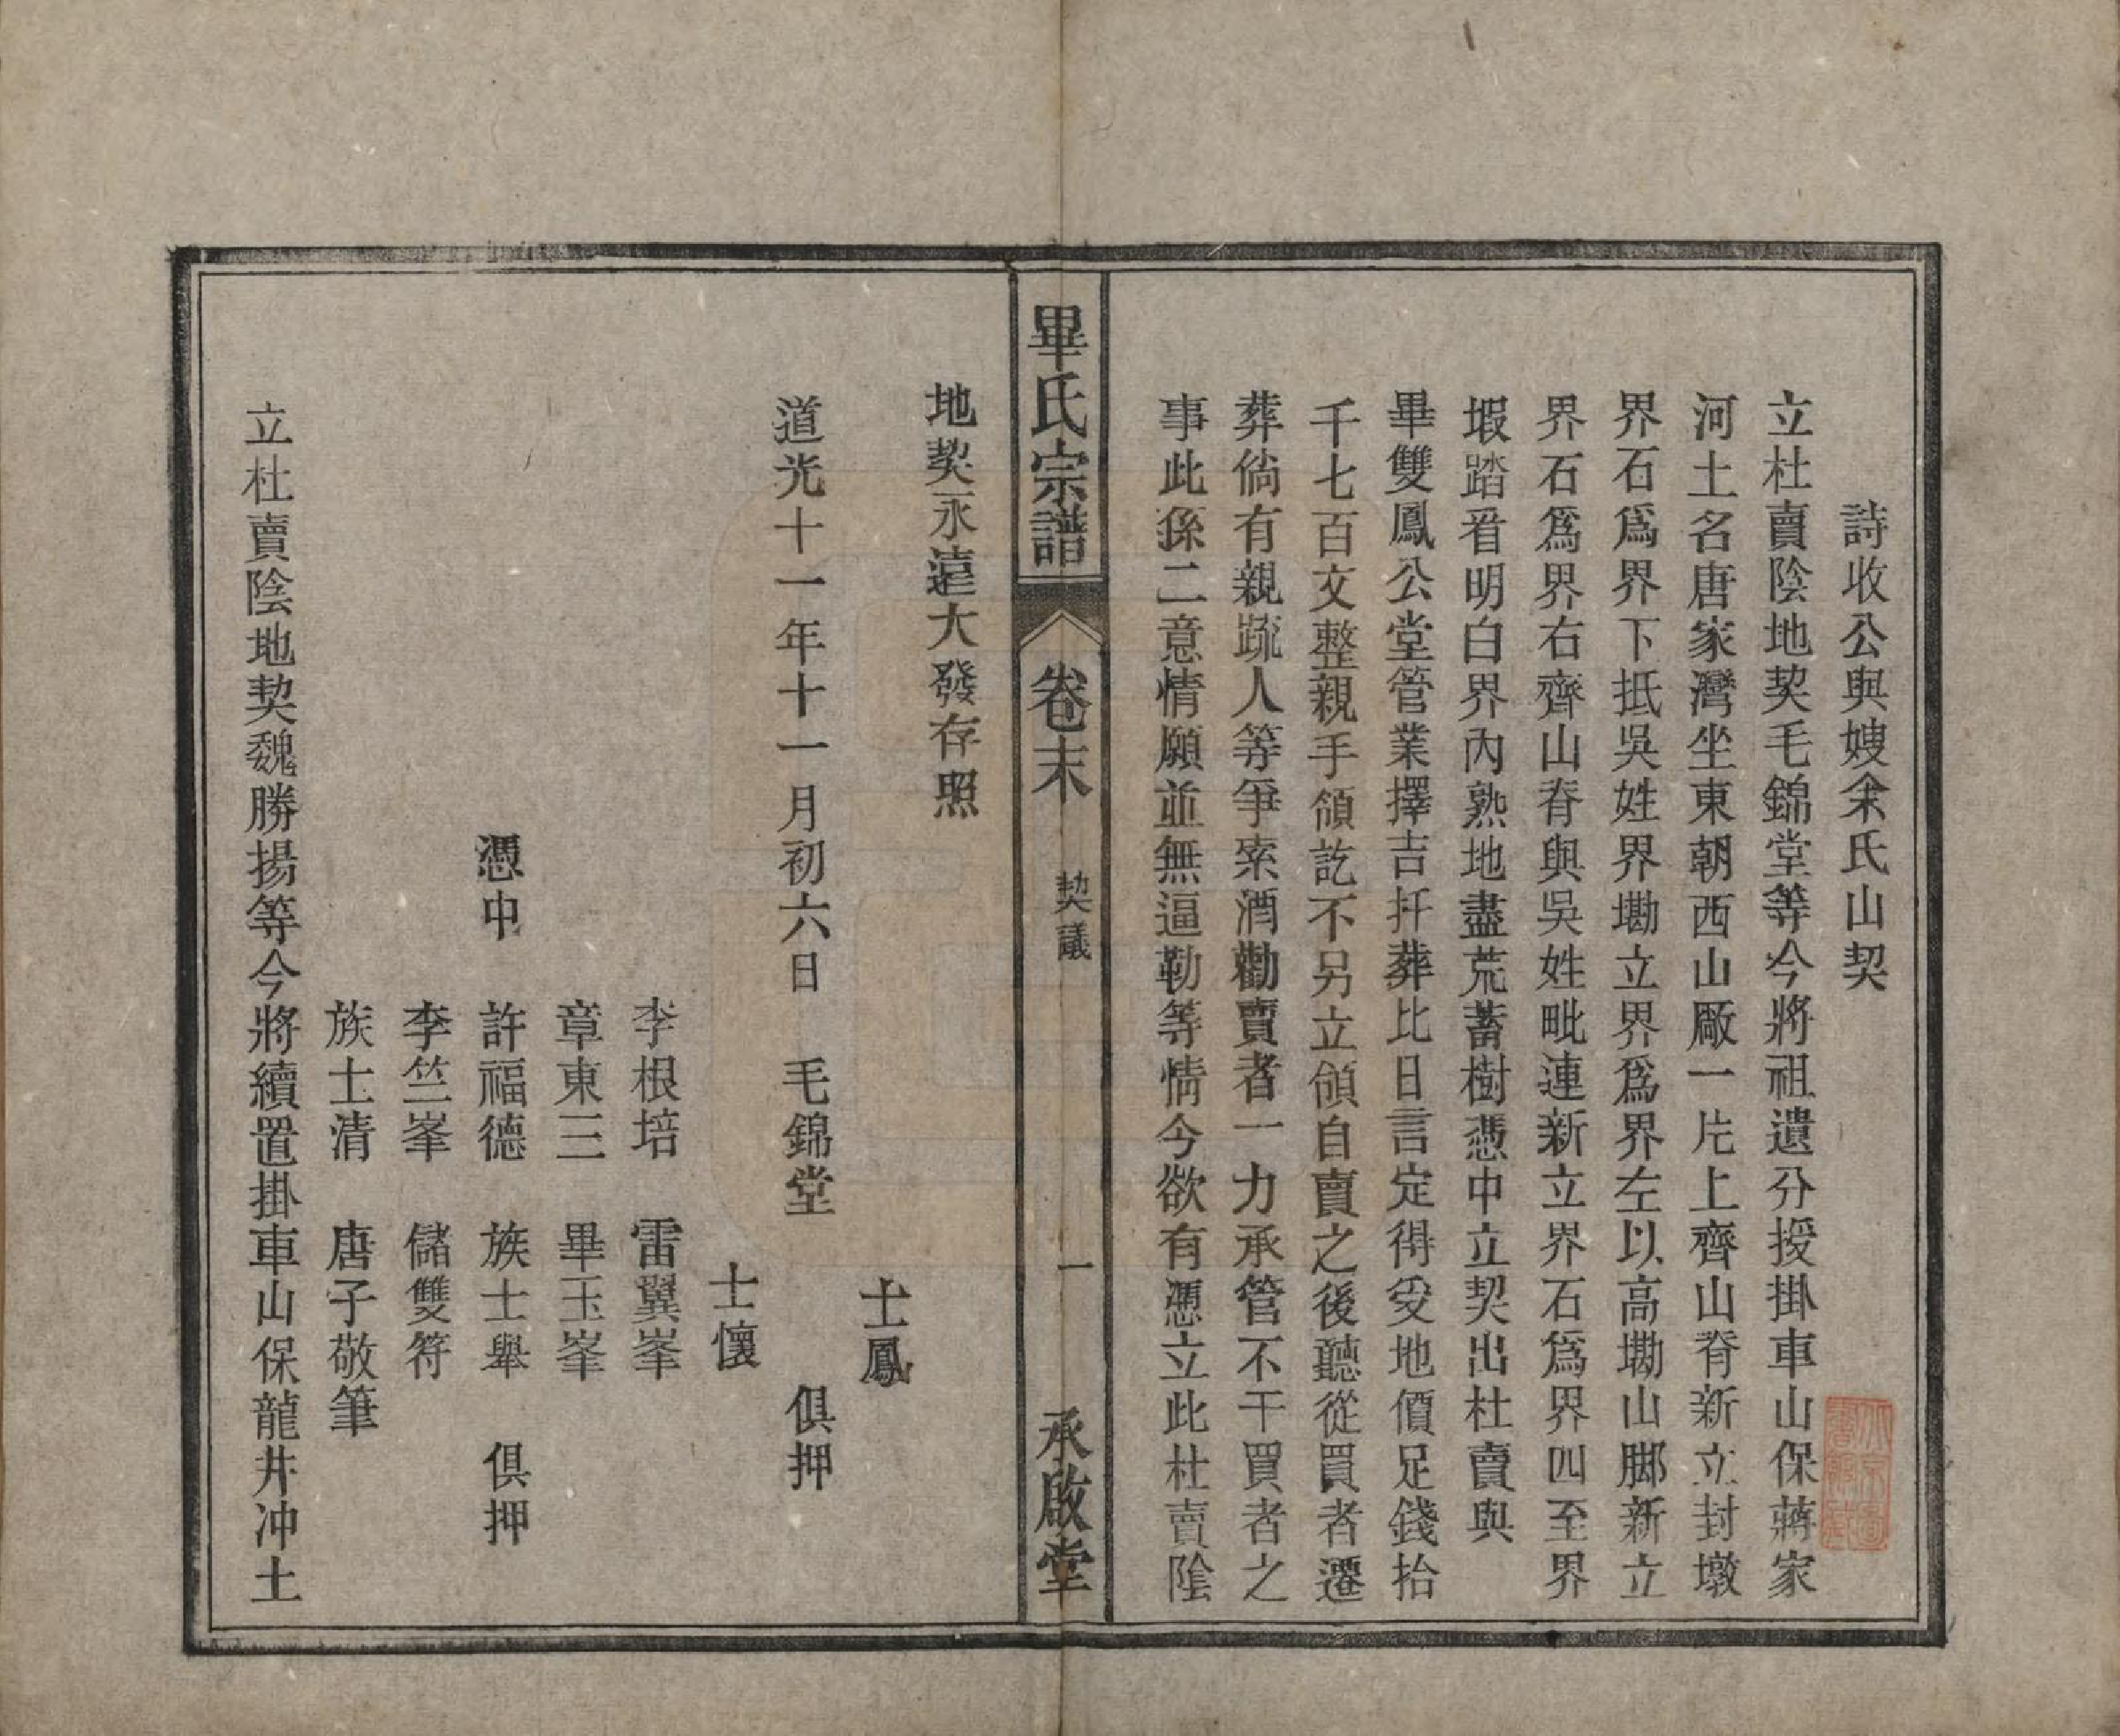 詩收公與嫂余氏山契
立杜賣陰地契毛錦堂等今將祖遺分授掛車山保蔣家
河土名唐家灣坐東朝西山厰一片上齊山脊新立封墩
界石爲界下抵吳姓界墈立界爲界左以高墈山脚新立
界石爲界右齊山脊與吳姓毗連新立界石爲界四至界
塅踏眉明白界內熟地盡荒蓄樹憑中立契出杜賣與
畢雙鳳公堂管業擇吉扦葬比日言定得受地價足錢拾
千七百文整親手領訖不另立領自賣之後聽從買者遷
葬倘有親疏人等爭索酒勸賣者一力承管不干買者之
事此係二意情願並無逼勒等情今欲有憑立此杜賣陰
畢氏宗譜 卷末 契議 一 承啟堂
地契永遠大發存照
士鳳
道光十一年十一月初六日 毛錦堂 俱押
士懷
李根培 雷翼峯
章東三 畢玉峯
憑中 許福德 族士舉 俱押
李竺峯 儲雙符
族士清 唐子敬筆
立杜賣陰地契魏勝揚等今將續置掛車山保龍井冲土